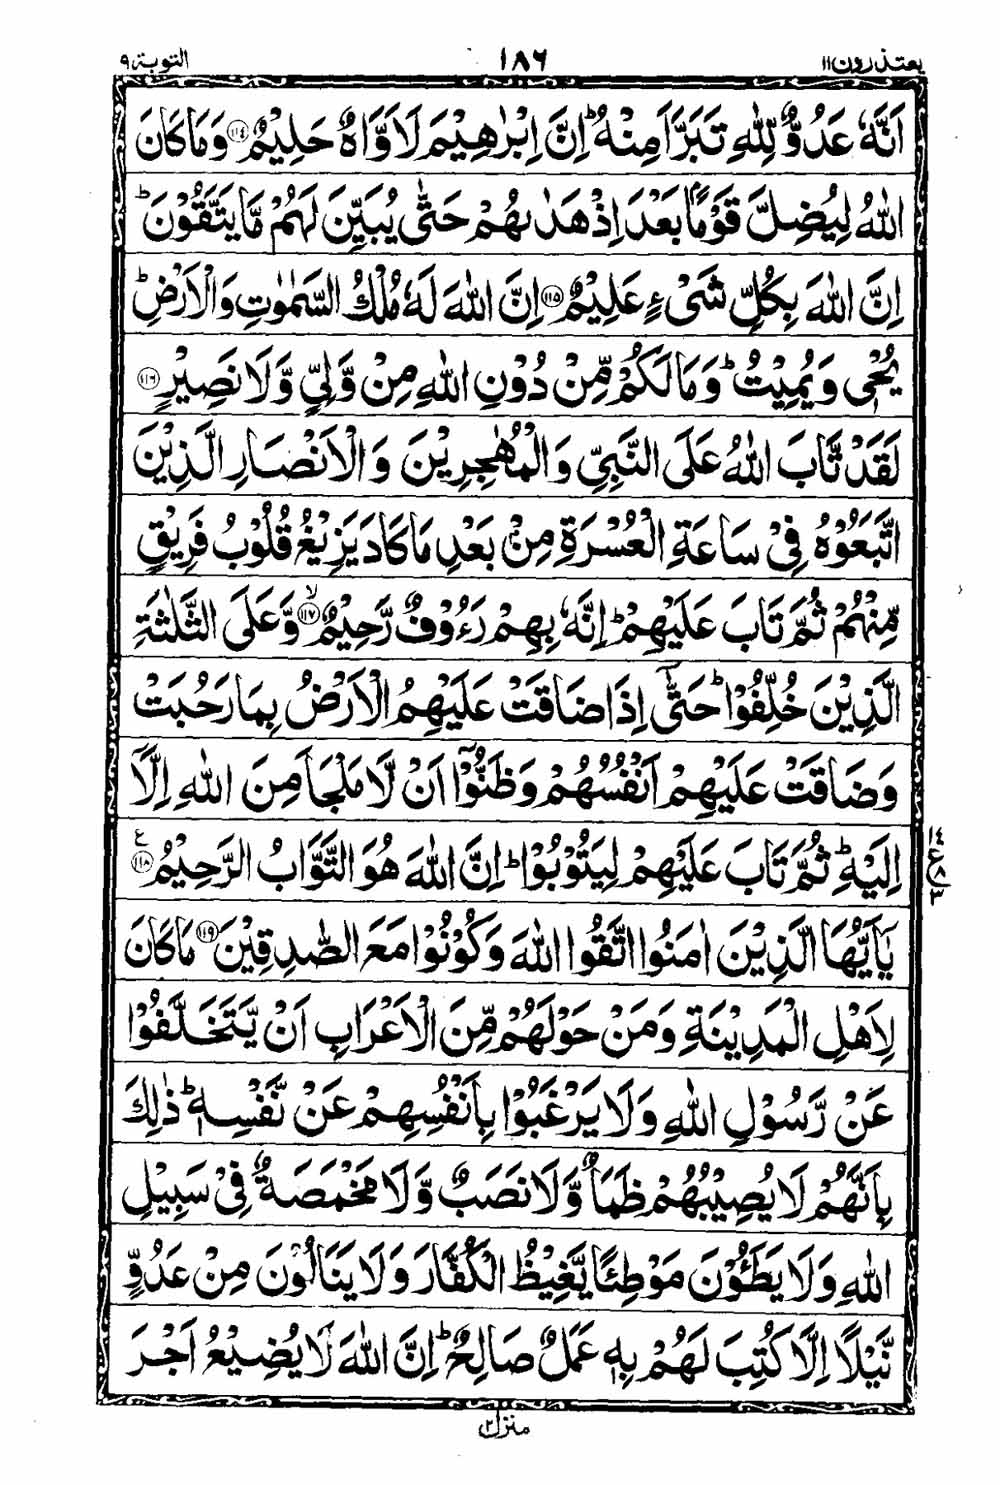 يعتذرون ١١ ١٨٦ التوبة ٩
اَنَّهٗ عَدُوٌّ لِّلّٰهِ تَبَرَّاَ مِنْهُ ؕ اِنَّ اِبْرٰهِيْمَ لَاَوَّاهٌ حَلِيْمٌ ﴿۱۱۴﴾ وَمَا كَانَ
اللّٰهُ لِيُضِلَّ قَوْمًۢا بَعْدَ اِذْ هَدٰىهُمْ حَتّٰى يُبَيِّنَ لَهُمْ مَّا يَتَّقُوْنَ ؕ
اِنَّ اللّٰهَ بِكُلِّ شَىْءٍ عَلِيْمٌ ﴿۱۱۵﴾ اِنَّ اللّٰهَ لَهٗ مُلْكُ السَّمٰوٰتِ وَالْاَرْضِ ؕ
يُحْىٖ وَيُمِيْتُ ؕ وَمَا لَكُمْ مِّنْ دُوْنِ اللّٰهِ مِنْ وَّلِىٍّ وَّلَا نَصِيْرٍ ﴿۱۱۶﴾
لَقَدْ تَّابَ اللّٰهُ عَلَى النَّبِىِّ وَالْمُهٰجِرِيْنَ وَالْاَنْصَارِ الَّذِيْنَ
اتَّبَعُوْهُ فِىْ سَاعَةِ الْعُسْرَةِ مِنْۢ بَعْدِ مَا كَادَ يَزِيْغُ قُلُوْبُ فَرِيْقٍ
مِّنْهُمْ ثُمَّ تَابَ عَلَيْهِمْ ؕ اِنَّهٗ بِهِمْ رَءُوْفٌ رَّحِيْمٌ ﴿۱۱۷﴾ۙ وَّعَلَى الثَّلٰثَةِ
الَّذِيْنَ خُلِّفُوْا ؕ حَتّٰٓى اِذَا ضَاقَتْ عَلَيْهِمُ الْاَرْضُ بِمَا رَحُبَتْ
وَضَاقَتْ عَلَيْهِمْ اَنْفُسُهُمْ وَظَنُّوْۤا اَنْ لَّا مَلْجَاَ مِنَ اللّٰهِ اِلَّاۤ
اِلَيْهِ ؕ ثُمَّ تَابَ عَلَيْهِمْ لِيَتُوْبُوْا ؕ اِنَّ اللّٰهَ هُوَ التَّوَّابُ الرَّحِيْمُ ﴿۱۱۸﴾ ع
يٰۤاَيُّهَا الَّذِيْنَ اٰمَنُوا اتَّقُوا اللّٰهَ وَكُوْنُوْا مَعَ الصّٰدِقِيْنَ ﴿۱۱۹﴾ مَا كَانَ
لِاَهْلِ الْمَدِيْنَةِ وَمَنْ حَوْلَهُمْ مِّنَ الْاَعْرَابِ اَنْ يَّتَخَلَّفُوْا
عَنْ رَّسُوْلِ اللّٰهِ وَلَا يَرْغَبُوْا بِاَنْفُسِهِمْ عَنْ نَّفْسِهٖ ؕ ذٰلِكَ
بِاَنَّهُمْ لَا يُصِيْبُهُمْ ظَمَاٌ وَّلَا نَصَبٌ وَّلَا مَخْمَصَةٌ فِىْ سَبِيْلِ
اللّٰهِ وَلَا يَطَئُوْنَ مَوْطِئًا يَّغِيْظُ الْكُفَّارَ وَلَا يَنَالُوْنَ مِنْ عَدُوٍّ
نَّيْلًا اِلَّا كُتِبَ لَهُمْ بِهٖ عَمَلٌ صَالِحٌ ؕ اِنَّ اللّٰهَ لَا يُضِيْعُ اَجْرَ
١٤
ع ٨
٣
منزل ٢